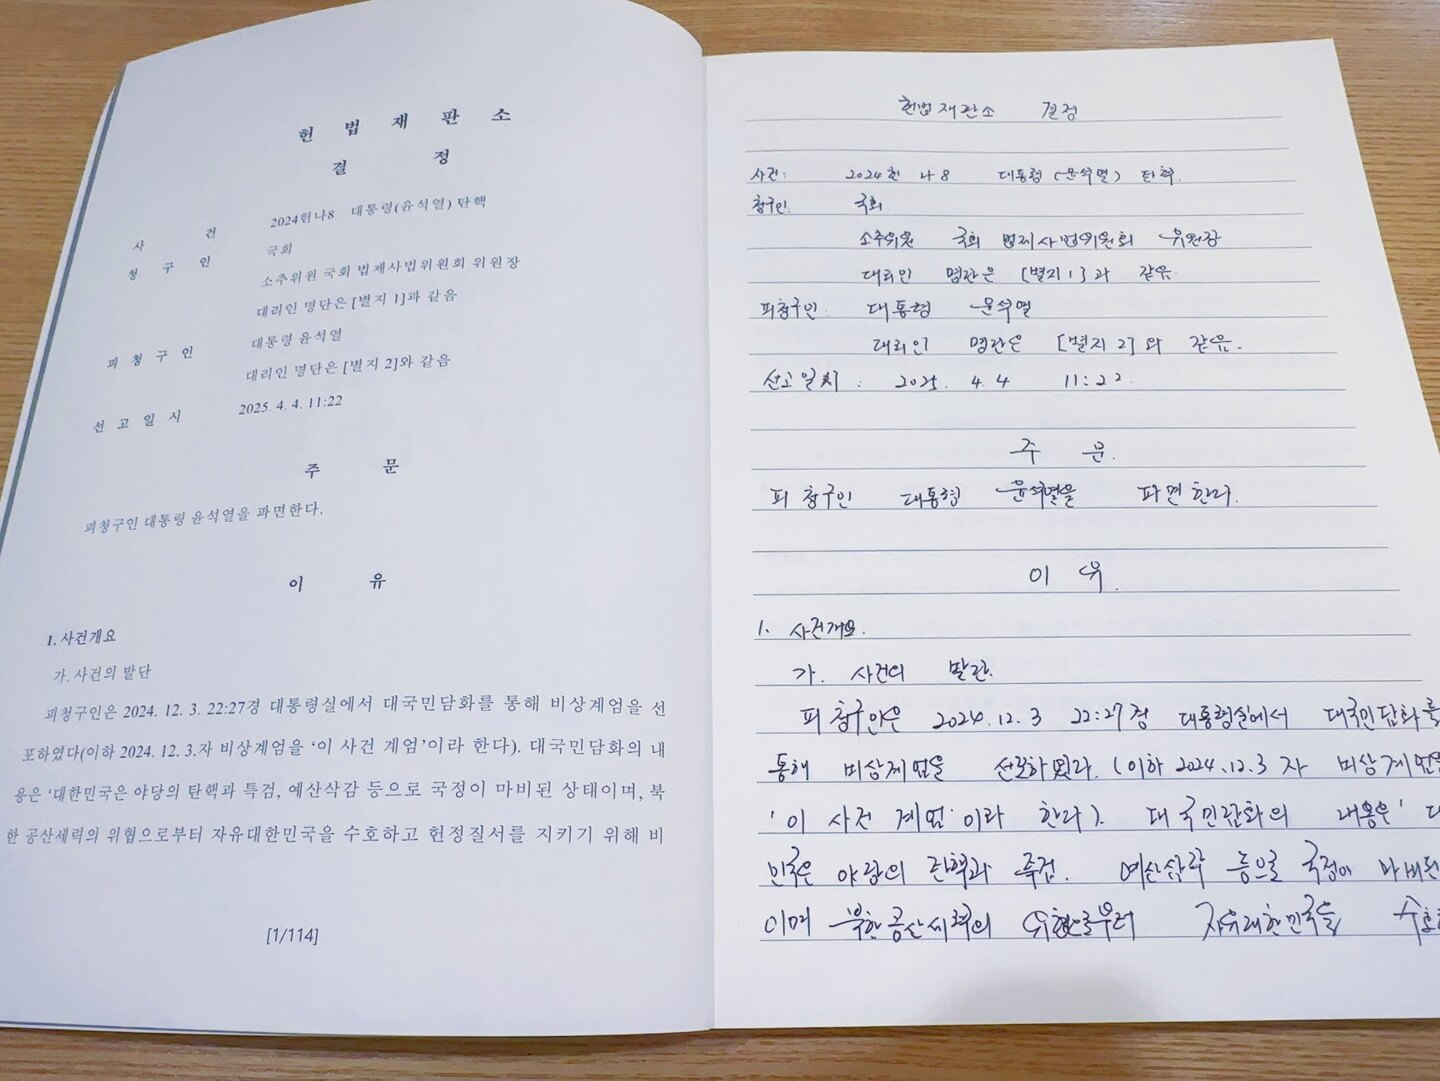 헌 법 재 판 소
결 정
사 건 2024헌나8 대통령(윤석열) 탄핵
청 구 인 국회
소추위원 국회 법제사법위원회 위원장
대리인 명단은 [별지 1]과 같음
피 청 구 인 대통령 윤석열
대리인 명단은 [별지 2]와 같음
선 고 일 시 2025. 4. 4. 11:22
주 문
피청구인 대통령 윤석열을 파면한다.
이 유
1. 사건개요
가. 사건의 발단
피청구인은 2024. 12. 3. 22:27경 대통령실에서 대국민담화를 통해 비상계엄을 선
포하였다(이하 2024. 12. 3.자 비상계엄을 ‘이 사건 계엄’이라 한다). 대국민담화의 내
용은 ‘대한민국은 야당의 탄핵과 특검, 예산삭감 등으로 국정이 마비된 상태이며, 북
한 공산세력의 위협으로부터 자유대한민국을 수호하고 헌정질서를 지키기 위해 비
[1/114]
헌법재판소 결정
사건: 2024헌 나 8 대통령 (윤석열) 탄핵.
청구인: 국회
소추위원 국회 법제사법위원회 위원장
대리인 명단은 [별지 1]과 같음.
피청구인: 대통령 윤석열
대리인 명단은 [별지 2]와 같음.
선고일시 : 2025. 4. 4 11:22.
주 문.
피청구인 대통령 윤석열을 파면한다.
이 유.
1. 사건개요.
가. 사건의 발단.
피청구인은 2024. 12. 3 22:27경 대통령실에서 대국민담화를
통해 비상계엄을 선포하였다. (이하 2024. 12. 3 자 비상계엄을
'이 사건 계엄'이라 한다). 대국민담화의 내용은 '대
민국은 야당의 탄핵과 특검. 예산삭감 등으로 국정이 마비된
이며 북한 공산세력의 위협으로부터 자유대한민국을 수호